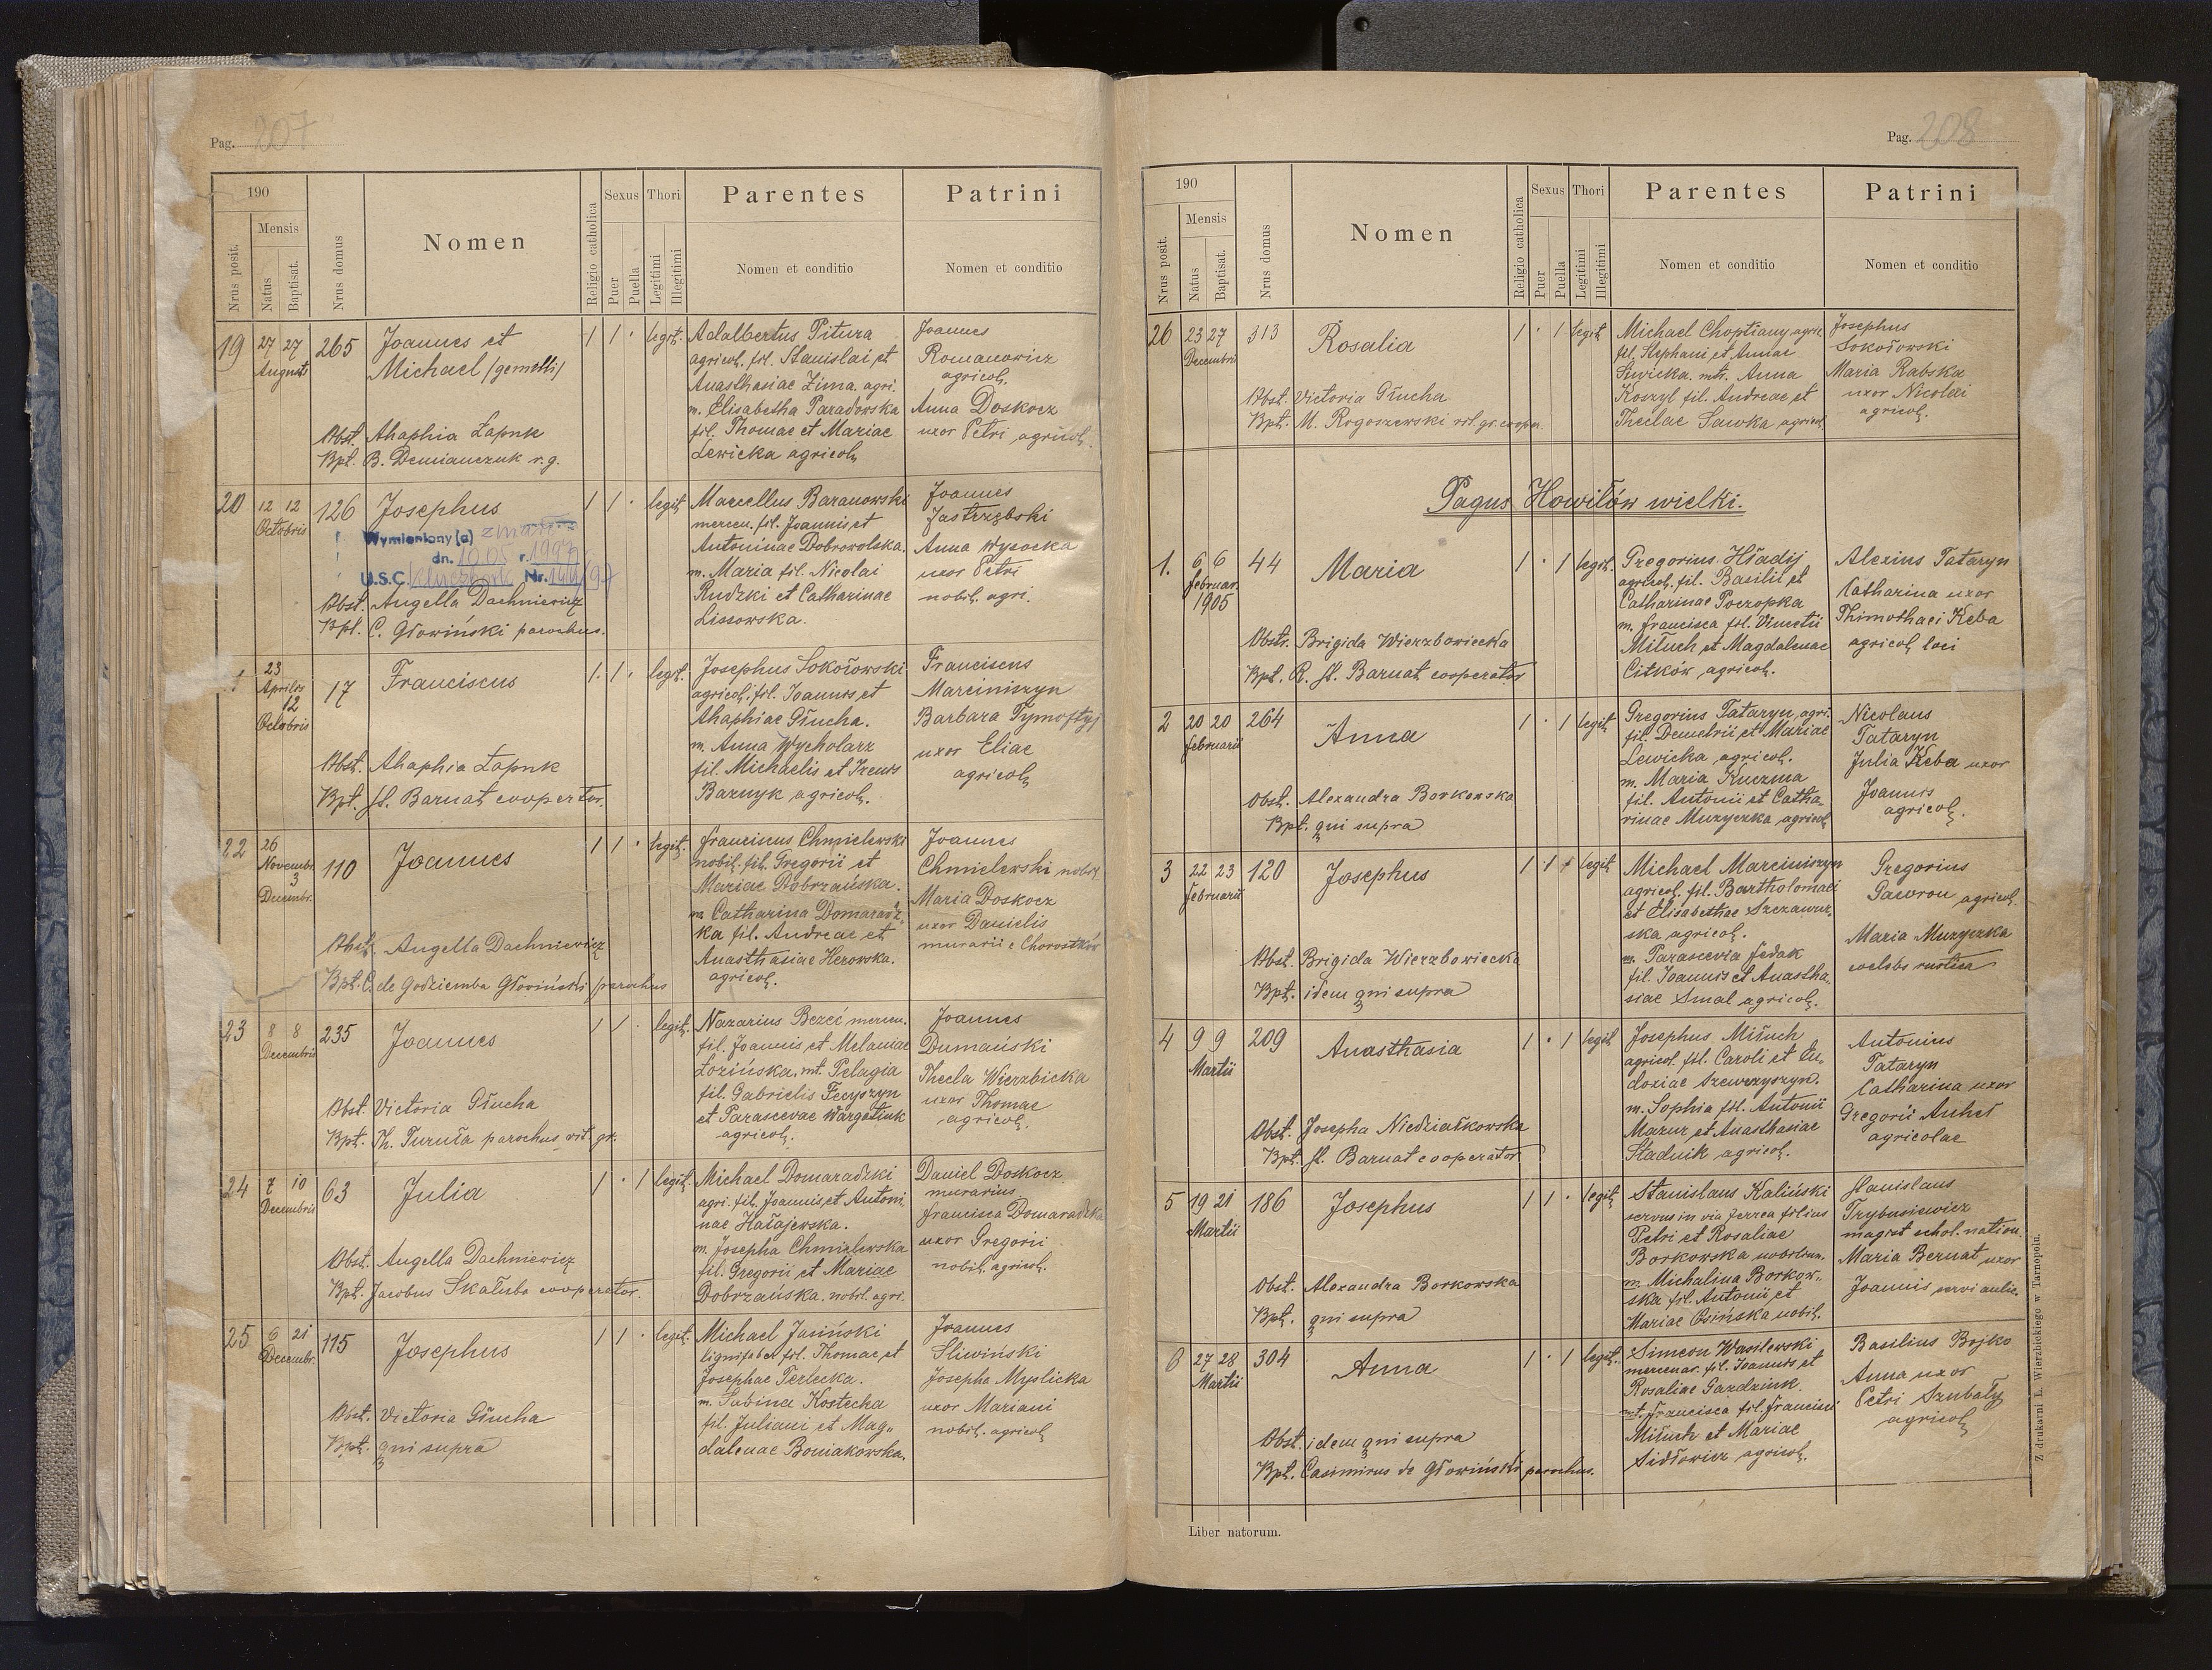 Pag. 207
190
Nrus posit.
Mensis
Natus
Baptisat.
Nrus domus
Nomen
Religio catholica
Sexus
Puer
Puella
Thori
Legitimi
Illegitimi
Parentes
Nomen et conditio
Patrini
Nomen et conditio
19 27 27 Augusti 265
Joannes et
Michael /gemelli/
Obst. Ahaphia Łapuk
Bpt. B. Demianczuk r. g.
1 1 · legit.
Adalbertus Pitura
agricol. fil. Stanislai et
Anasthasiae Zima. agri.
m. Elisabetha Paradowska
fil. Thomae et Mariae
Lewicka agricol.
Joannes
Romanowicz
agricol.
Anna Doskocz
uxor Petri agricol.
20 12 12 Octobris 126
Josephus
Wymieniony (a) zmarł
dn. 10 05 r. 1997
U.S.C. Nr.
Obst. Angella Dachniewicz
Bpt. C. Głowiński parochus.
1 1 · legit.
Marcellus Baranowski
mercen. fil. Joannis et
Antoninae Dobrowolska.
m. Maria fil. Nicolai
Rudzki et Catharinae
Lissowska.
Joannes
Jastrzębski
Anna Wysocka
uxor Petri
nobil. agri.
23 Aprilis 12 Octobris 17
Franciscus
Obst. Ahaphia Łapuk
Bpt. St. Barnat cooperator.
1 · 1 · legit.
Josephus Sokołowski
agricol. fil. Joannis et
Ahaphiae Głucha.
m. Anna Wycholarz
fil. Michaelis et Irenis
Barnyk agricol.
Franciscus
Marciniszyn
Barbara Tymoftyj
uxor Eliae
agricol.
22 26 Novembr. 3 Decembr. 110
Joannes
Obst. Angella Dachniewicz
Bpt. C. de Godziemba Głowiński /parochus
1 1 · legit.
Franciscus Chmielewski
nobil. fil. Gregorii et
Mariae Dobrzańska.
m. Catharina Domaradz-
ka fil. Andreae et
Anasthasiae Herowska.
agricol.
Joannes
Chmielewski nobil.
Maria Doskocz
uxor Danielis
murarii e Chorostków
23 8 8 Decembris 235
Joannes
Obst. Victoria Głucha
Bpt. Th. Turuła parochus rit. gr.
1 1 · legit.
Nazarius Bezeć mercen.
fil. Joannis et Melaniae
Łozińska. mt. Pelagia
fil. Gabrielis Fecyszyn
et Parascevae Wargatiuk
agricol.
Joannes
Dumański
Thecla Wierzbicka
uxor Thomae
agricol.
24 7 10 Decembris 63
Julia
Obst. Angella Dachniewicz
Bpt. Jacobus Skałuba cooperator.
1 · 1 legit.
Michael Domaradzki
agri. fil. Joannis et Antoni-
nae Hałajewska.
m. Josepha Chmielewska
fil. Gregorii et Mariae
Dobrzańska. nobil. agri.
Daniel Doskocz
murarius.
Francisca Domaradzka
uxor Gregorii
nobil. agricol.
25 6 21 Decembr. 115
Josephus
Obst. Victoria Głucha
Bpt. qui supra
1 1 · legit.
Michael Jasiński
lignifaber fil. Thomae et
Josephae Terlecka.
m. Sabina Kostecka
fil. Juliani et Mag-
dalenae Boniakowska.
Joannes
Sliwiński
Josepha Myslicka
uxor Mariani
nobil. agricol.
Pag. 208
190
Nrus posit.
Mensis
Natus
Baptisat.
Nrus domus
Nomen
Religio catholica
Sexus
Puer
Puella
Thori
Legitimi
Illegitimi
Parentes
Nomen et conditio
Patrini
Nomen et conditio
26 23 27 Decembris 313
Rosalia
Obst. Victoria Głucha
Bpt. M. Rogoszewski rit. gr. cooper.
1 · 1 legit.
Michael Choptiany agric.
fil. Stephani et Annae
Siwicka. mtr. Anna
Koszyl fil. Andreae et
Theclae Sawka agricol.
Josephus
Sokołowski
Maria Rabska
uxor Nicolai
agricol.
Pagus Howiłów wielki.
1. 6 6 Februar. 1905 44
Maria
Obstr. Brigida Wierzbowiecka
Bpt. R. St. Barnat cooperator
1 · 1 legit.
Gregorius Hładij
agricol. fil. Basilii et
Catharinae Poczopka
m. Francisca fil. Vincetii
Miłuch et Magdalenae
Citków agricol.
Alexius Tataryn
Catharina uxor
Thimothaei Keba
agricol. loci
2 20 20 Februarii 264
Anna
Obst. Alexandra Borkowska
Bpt. qui supra
1 · 1 legit.
Gregorius Tataryn agri.
fil. Demetrii et Mariae
Lewicka agricol.
m. Maria Kuczma
fil. Antonii et Catha-
rinae Muzyczka agricol.
Nicolaus
Tataryn
Julia Keba uxor
Joannis
agricol.
3 22 23 Februarii 120
Josephus
Obst. Brigida Wierzbowiecka
Bpt. idem qui supra
1 · 1 legit.
Michael Marciniszyn
agricol. fil. Bartholomaei
et Elisabethae Szczawur-
ska agricol.
m. Parascevia Fedak
fil. Joannis et Anastha-
siae Smal agricol.
Gregorius
Gawron agricol.
Maria Muzyczka
coelebs rustica
4 9 9 Martii 209
Anasthasia
Obst. Josepha Niedziałkowska
Bpt. St. Barnat cooperator
1 · 1 legit
Josephus Miłuch
agricol. fil. Caroli et Eu-
doxiae Szewczyszyn.
m. Sophia fil. Antonii
Mazur et Anasthasiae
Stadnik agricol.
Antonius
Tataryn
Catharina uxor
Gregorii Anheł
agricolae
5 19 21 Martii 186
Josephus
Obst. Alexandra Borkowska
Bpt. qui supra
1 1 · legit.
Stanislaus Kaliński
servus in via ferrea filius
Petri et Rosaliae
Borkowska nobilium.
m. Michalina Borkow-
ska fil. Antonii et
Mariae Osińska nobil.
Stanislaus
Trybusiewicz
magist schol. nation.
Maria Bernat uxor
Joannis servi aulic.
6 27 28 Martii 304
Anna
Obst. idem qui supra
Bpt. Casimirus de Głowiński parochus.
1 · 1 legit.
Simeon Wasilewski
mercenar. fil. Joannis et
Rosaliae Gazdziuk.
mt. Francisca fil. Francisci
Miłuch et Mariae
Sidłowicz agricol.
Basilius Bojko
Anna uxor
Petri Szubały
agricol.
Liber natorum.
Z drukarni L. Wierzbickiego w Tarnopolu.